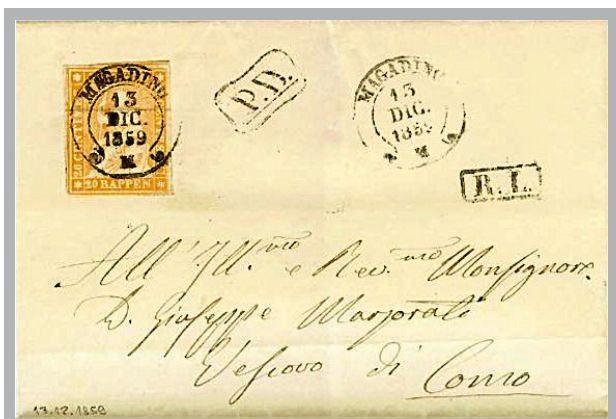 MAGADINO
13
DIC.
1859
M
20 RAPPEN
P.D.
MAGADINO
13
DIC.
1859
M
R.L.
All' Ill.mo e Rev.mo Monsignore
D. Giuseppe Marzorati
Vescovo di Como
13.12.1859